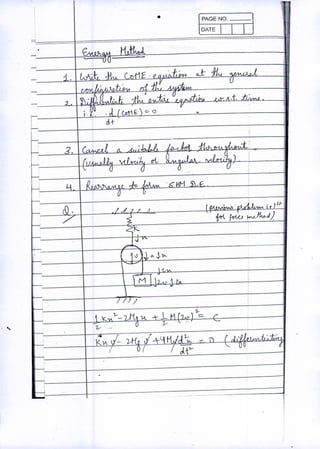 PAGE NO.
DATE
Energy Method
1. Write the COTE equation at the general
configuration of the system
2. Differentiate the entire equation w.r.t. time.
i.e. d (COTE) = 0
dt
3. Cancel a suitable factor throughout
(usually velocity or angular velocity).
4. Rearrange to form SHM D.E.
Q. (previous problem is 1st
for force method)
k
↓x
v ↓a ↓x
↓2x
M ↓2v ↓2a
1/2 Kx² - 2Mgx + 1/2 M(2v)² = C
Kx v - 2Mg v + 4Mv d²x/dt² = 0 (differentiating